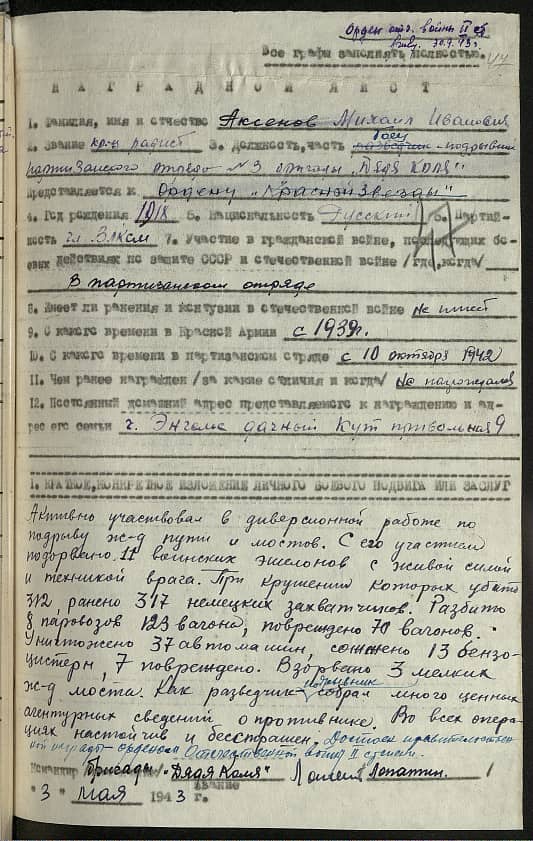 Орден отеч. войны II ст.
30.9.43 г.
Все графы заполнять полностью.
НАГРАДНОЙ ЛИСТ
1. Фамилия, имя и отчество Аксенов Михаил Иванович
2. Звание радист 3. Должность, часть боец подрывник
партизанского отряда № 3 бригады "Дядя Коля"
Представляется к Ордену "Красной Звезды"
4. Год рождения 1918 5. Национальность Русский 6. Партий-
ность чл ВЛКСМ 7. Участие в гражданской войне, последующих бо-
евых действиях по защите СССР и отечественной войне /где, когда/
В партизанском отряде
8. Имеет ли ранения и контузии в отечественной войне Не имеет
9. С какого времени в Красной Армии с 1939г.
10. С какого времени в партизанском отряде с 10 октября 1942
11. Чем ранее награжден /за какие отличия и когда/ Не награждался
12. Постоянный домашний адрес представляемого к награждению и ад-
рес его семьи г. Энгельс дачный Кут привольная 9
1. КРАТКОЕ, КОНКРЕТНОЕ ИЗЛОЖЕНИЕ ЛИЧНОГО БОЕВОГО ПОДВИГА ИЛИ ЗАСЛУГ
Активно участвовал в диверсионной работе по
подрыву ж-д пути и мостов. С его участием
подорвано 11 воинских эшелонов с живой силой
и техникой врага. При крушении которых убито
312, ранено 317 немецких захватчиков. Разбито
8 паровозов 123 вагона, повреждено 70 вагонов.
Уничтожено 37 автомашин, сожжено 13 бензо-
цистерн, 7 повреждено. Взорвано 3 мелких
ж-д моста. Как разведчик подрывник собрал много ценных
агентурных сведений о противнике. Во всех опера-
циях настойчив и бесстрашен. Достоин правительствен-
ной награды орденом Отечественной войны II степени.
Командир бригады "Дядя Коля" Лопатин /
звание
"3" мая 1943 г.